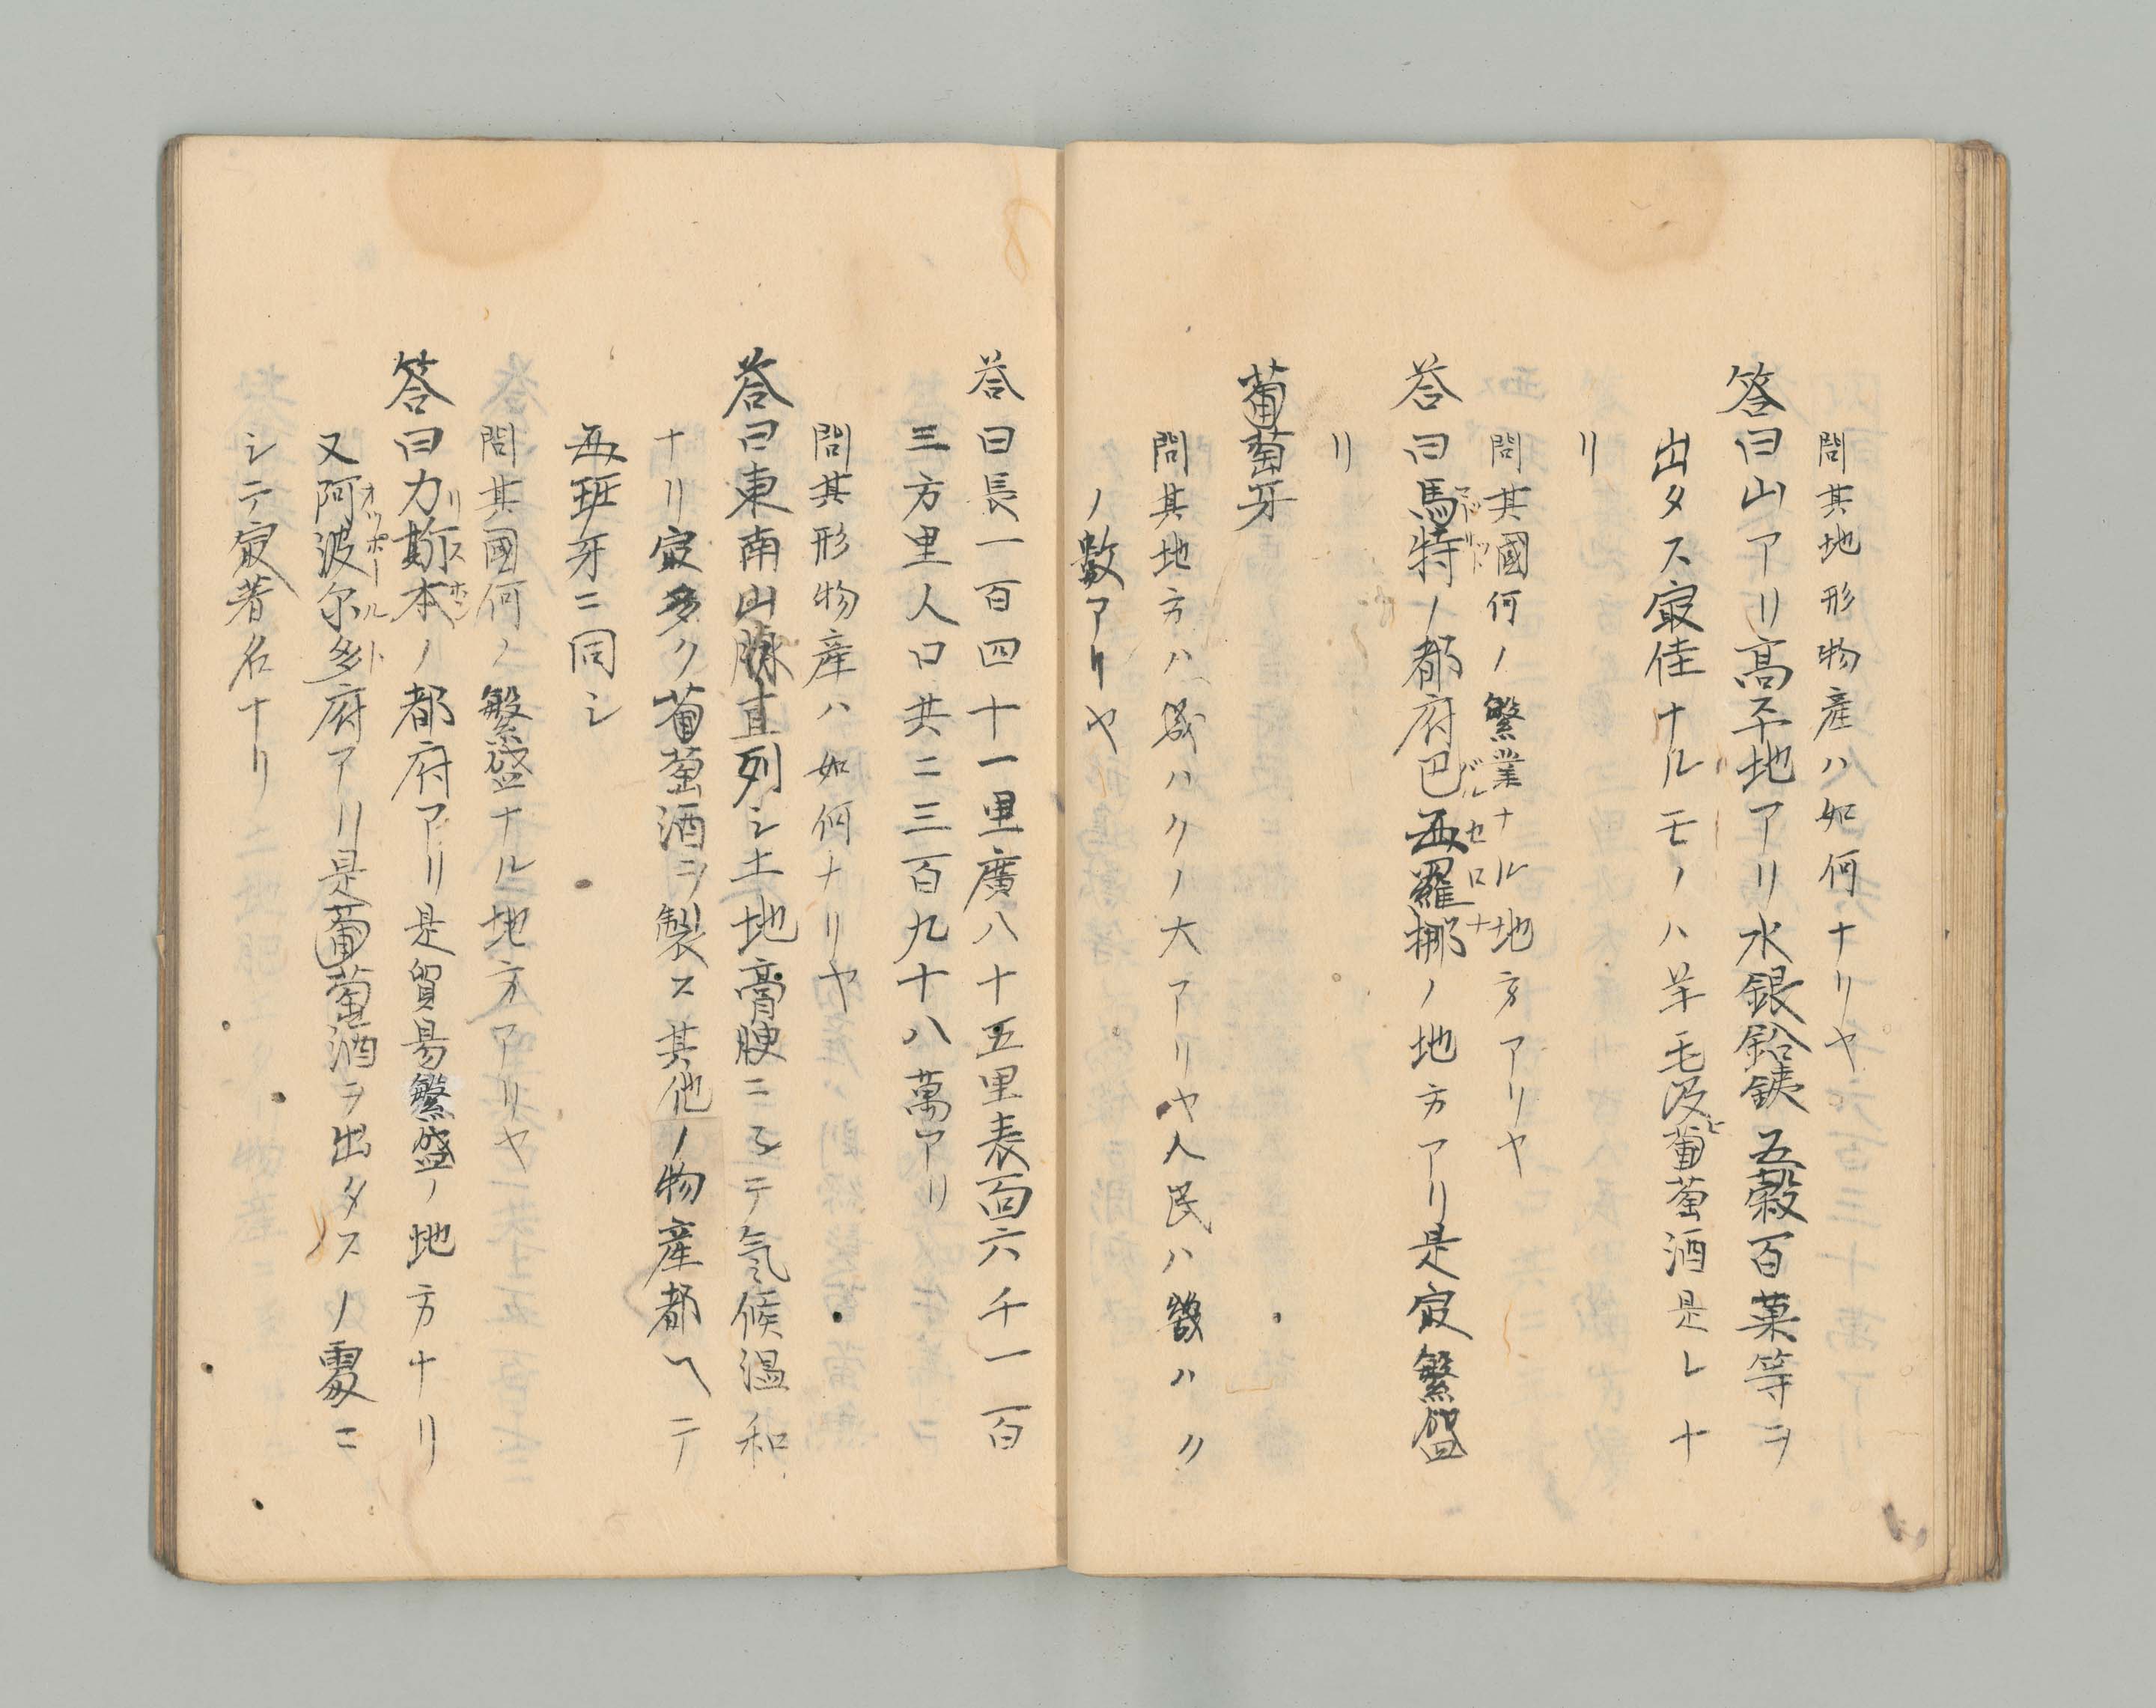 問其地形物産ハ如何ナリヤ
答曰山アリ髙平地アリ水銀鉛銕五穀百菓等ヲ
出タス㝡佳ナルモノハ羊毛及ヒ葡萄酒是レナ
リ
問其國何ノ繁業ナル地方アリヤ
答曰馬特ノ都府巴西羅挪ノ地方アリ是㝡繁盛
マドリット バルセロナ
リ
葡萄牙
問其地方ハ幾ハクノ大アリヤ人民ハ幾ハク
ノ數アリヤ
答曰長一百四十一里廣八十五里表面六千一百
三方里人口共ニ三百九十八萬アリ
問其形物産ハ如何ナリヤ
答曰東南山脉直列シ土地膏腴ニシテ氣候温和
ナリ㝡多ク葡萄酒ヲ製ス其他ノ物産都ヘテ
西班牙ニ同シ
問其國何ノ繁盛ナル地方アリヤ
答曰力斯本ノ都府アリ是貿昜繁盛ノ地方ナリ
リスホン
又阿波尔多府アリ是葡萄酒ヲ出タスノ處ニ
オッポールト
シテ㝡著名ナリ